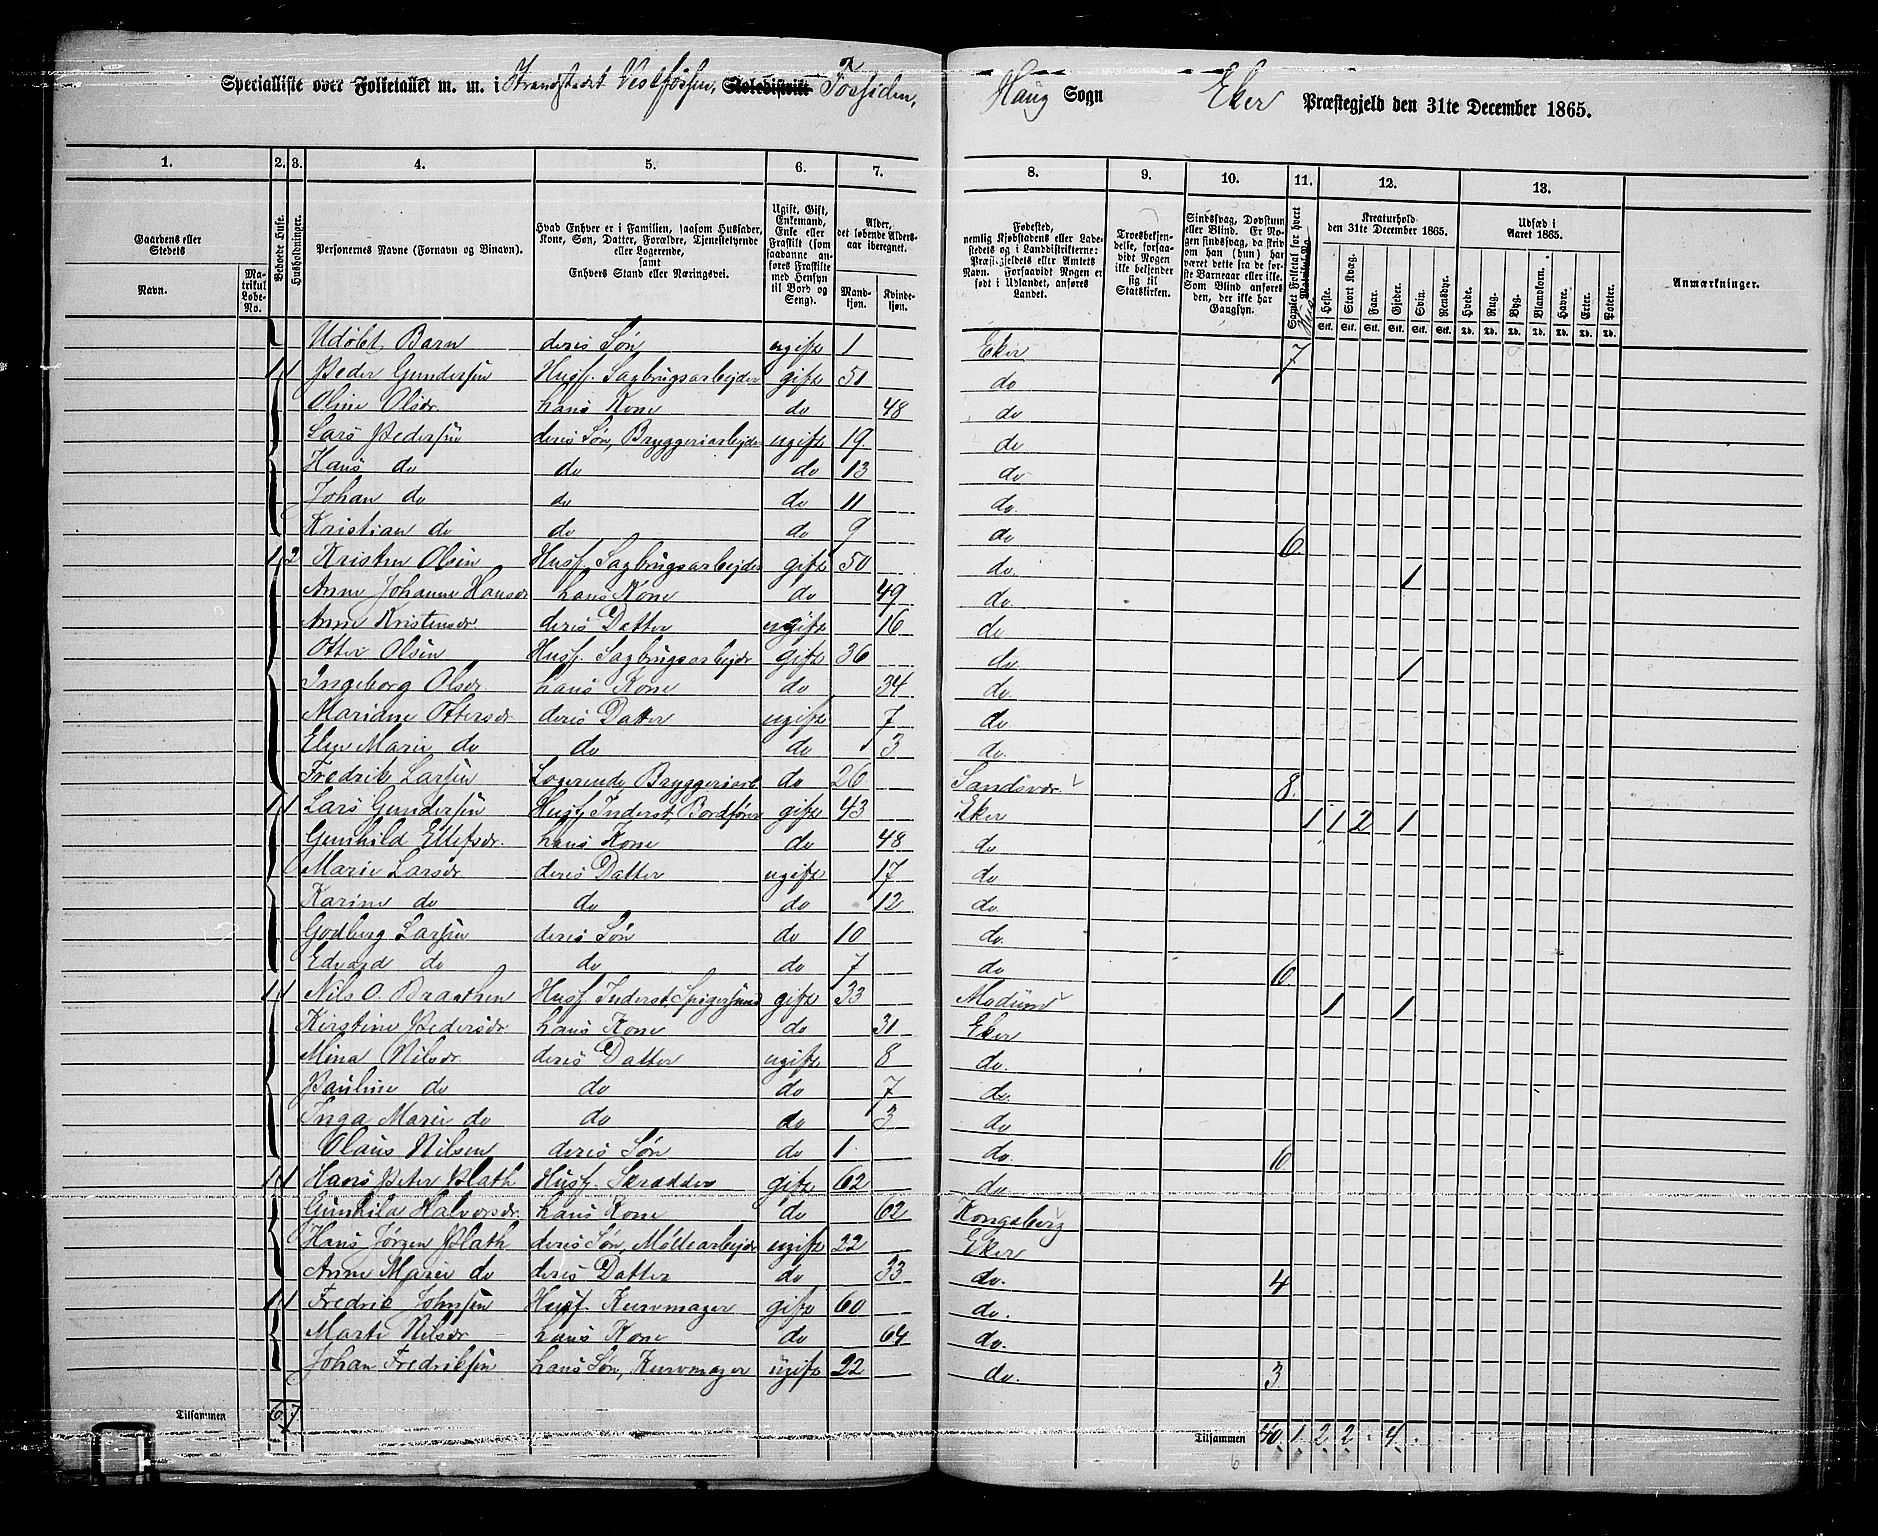 Specialliste over Folketallet m. m. i Strandstedet Vestfossen, Skoledistrikt Fossiden, Haug Sogn Eker Præstegjeld den 31te December 1865.
1. 2. 3. 4. 5. 6. 7. 8. 9. 10. 11. 12. 13.
Gaardens eller Stedets Navn. Matrikul Løbe-No. Beboede Huse. Husholdninger. Personernes Navne (Fornavn og Binavn). Hvad Enhver er i Familien, saasom Husfader, Kone, Søn, Datter, Forældre, Tjenestetyende eller Logerende, samt Enhvers Stand eller Næringsvei. Ugift, Gift, Enkemand, Enke eller Fraskilt (som saadanne anføres Fraskilte med Hensyn til Bord og Seng). Alder, det løbende Aldersaar iberegnet. Mandkjøn. Kvindekjøn. Fødested, nemlig Kjøbstadens eller Ladestedets og i Landdistrikterne: Præstegjeldets eller Amtets Navn. Forsaavidt Nogen er født i Udlandet, anføres Landet. Troesbekjendelse, forsaavidt Nogen ikke bekjender sig til Statskirken. Sindssvag, Døvstum eller Blind. Er Nogen sindssvag, da skriv om han (hun) har været dette fra de første Barneaar eller ikke. Som Blind anføres den, der ikke har Gangsyn. Samlet Folketal for hvert Huus Kreaturhold den 31te December 1865. Heste. Stort Kvæg. Faar. Gjeder. Svin. Rensdyr. Udsæd i Aaret 1865. Hvede. Rug. Byg. Blandkorn. Havre. Erter. Poteter. Anmærkninger.
Udøbt Barn deres Søn ugift 1 Eker 7
1 1 Peder Gundersen Husf. Sagbrugsarbejder gift 51 do
Oline Olsdr hans Kone do 48 do
Lars Pedersen deres Søn, Bryggeriarbejder ugift 19 do
Hans do do do 13 do
Johan do do do 11 do.
Kristian do do do 9 do 6
1 2 Kristen Olsen Husf. Sagbrugsarbejder gift 50 do. 1
Anne Johanne Hansdr hans Kone do 49 do.
Anne Kristensdr. deres Datter ugift 16 do
Otter Olsen Husf. Sagbrugsarbejdr gift 36 do 1
Ingeborg Olsdr. hans Kone do 34 do.
Mariane Ottersdr. deres Datter ugift 7 do.
Elen Marie do do do 3 do.
Fredrik Larsen Logerende Bryggeriarb. do 26 Sandsvær 8.
1 1 Lars Gundersen Husf. Inderst, Bordfører gift 43 Eker 1 1 2 1
Gunhild Ellefsdr. hans Kone do 48 do
Marie Larsdr deres Datter ugift 17 do
Karine do do do 12 do.
Godberg Larsen deres Søn do 10 do.
Edvard do do do 7 do 6.
1 1 Nils O. Braathen Husf. Inderst, Spigersmed gift 33 Modum 1 1
Kirstine Pedersdr. hans Kone do 31 Eker
Mina Nilsdr. deres Datter ugift 8 do.
Pauline do do do 7 do.
Inga Marie do do do 3 do
Olaus Nilsen deres Søn do 1. do. 6
1 1 Hans Peter Plath Husf. Skrædder gift 62 do
Gunhild Halvorsdr. hans Kone do 62 Kongsberg
Hans Jørgen Plath deres Søn, Møllearbejdr ugift 22 Eker
Anne Marie do deres Datter do 33 do. 4
1 1 Fredrik Johnsen Husf. Kurvmager gift 60 do.
Marte Nilsdr hans Kone do 64 do.
Johan Fredriksen hans Søn, Kurvmager ugift 22 do. 3
Tilsammen 6 7 Tilsammen 40 1 2 2 4